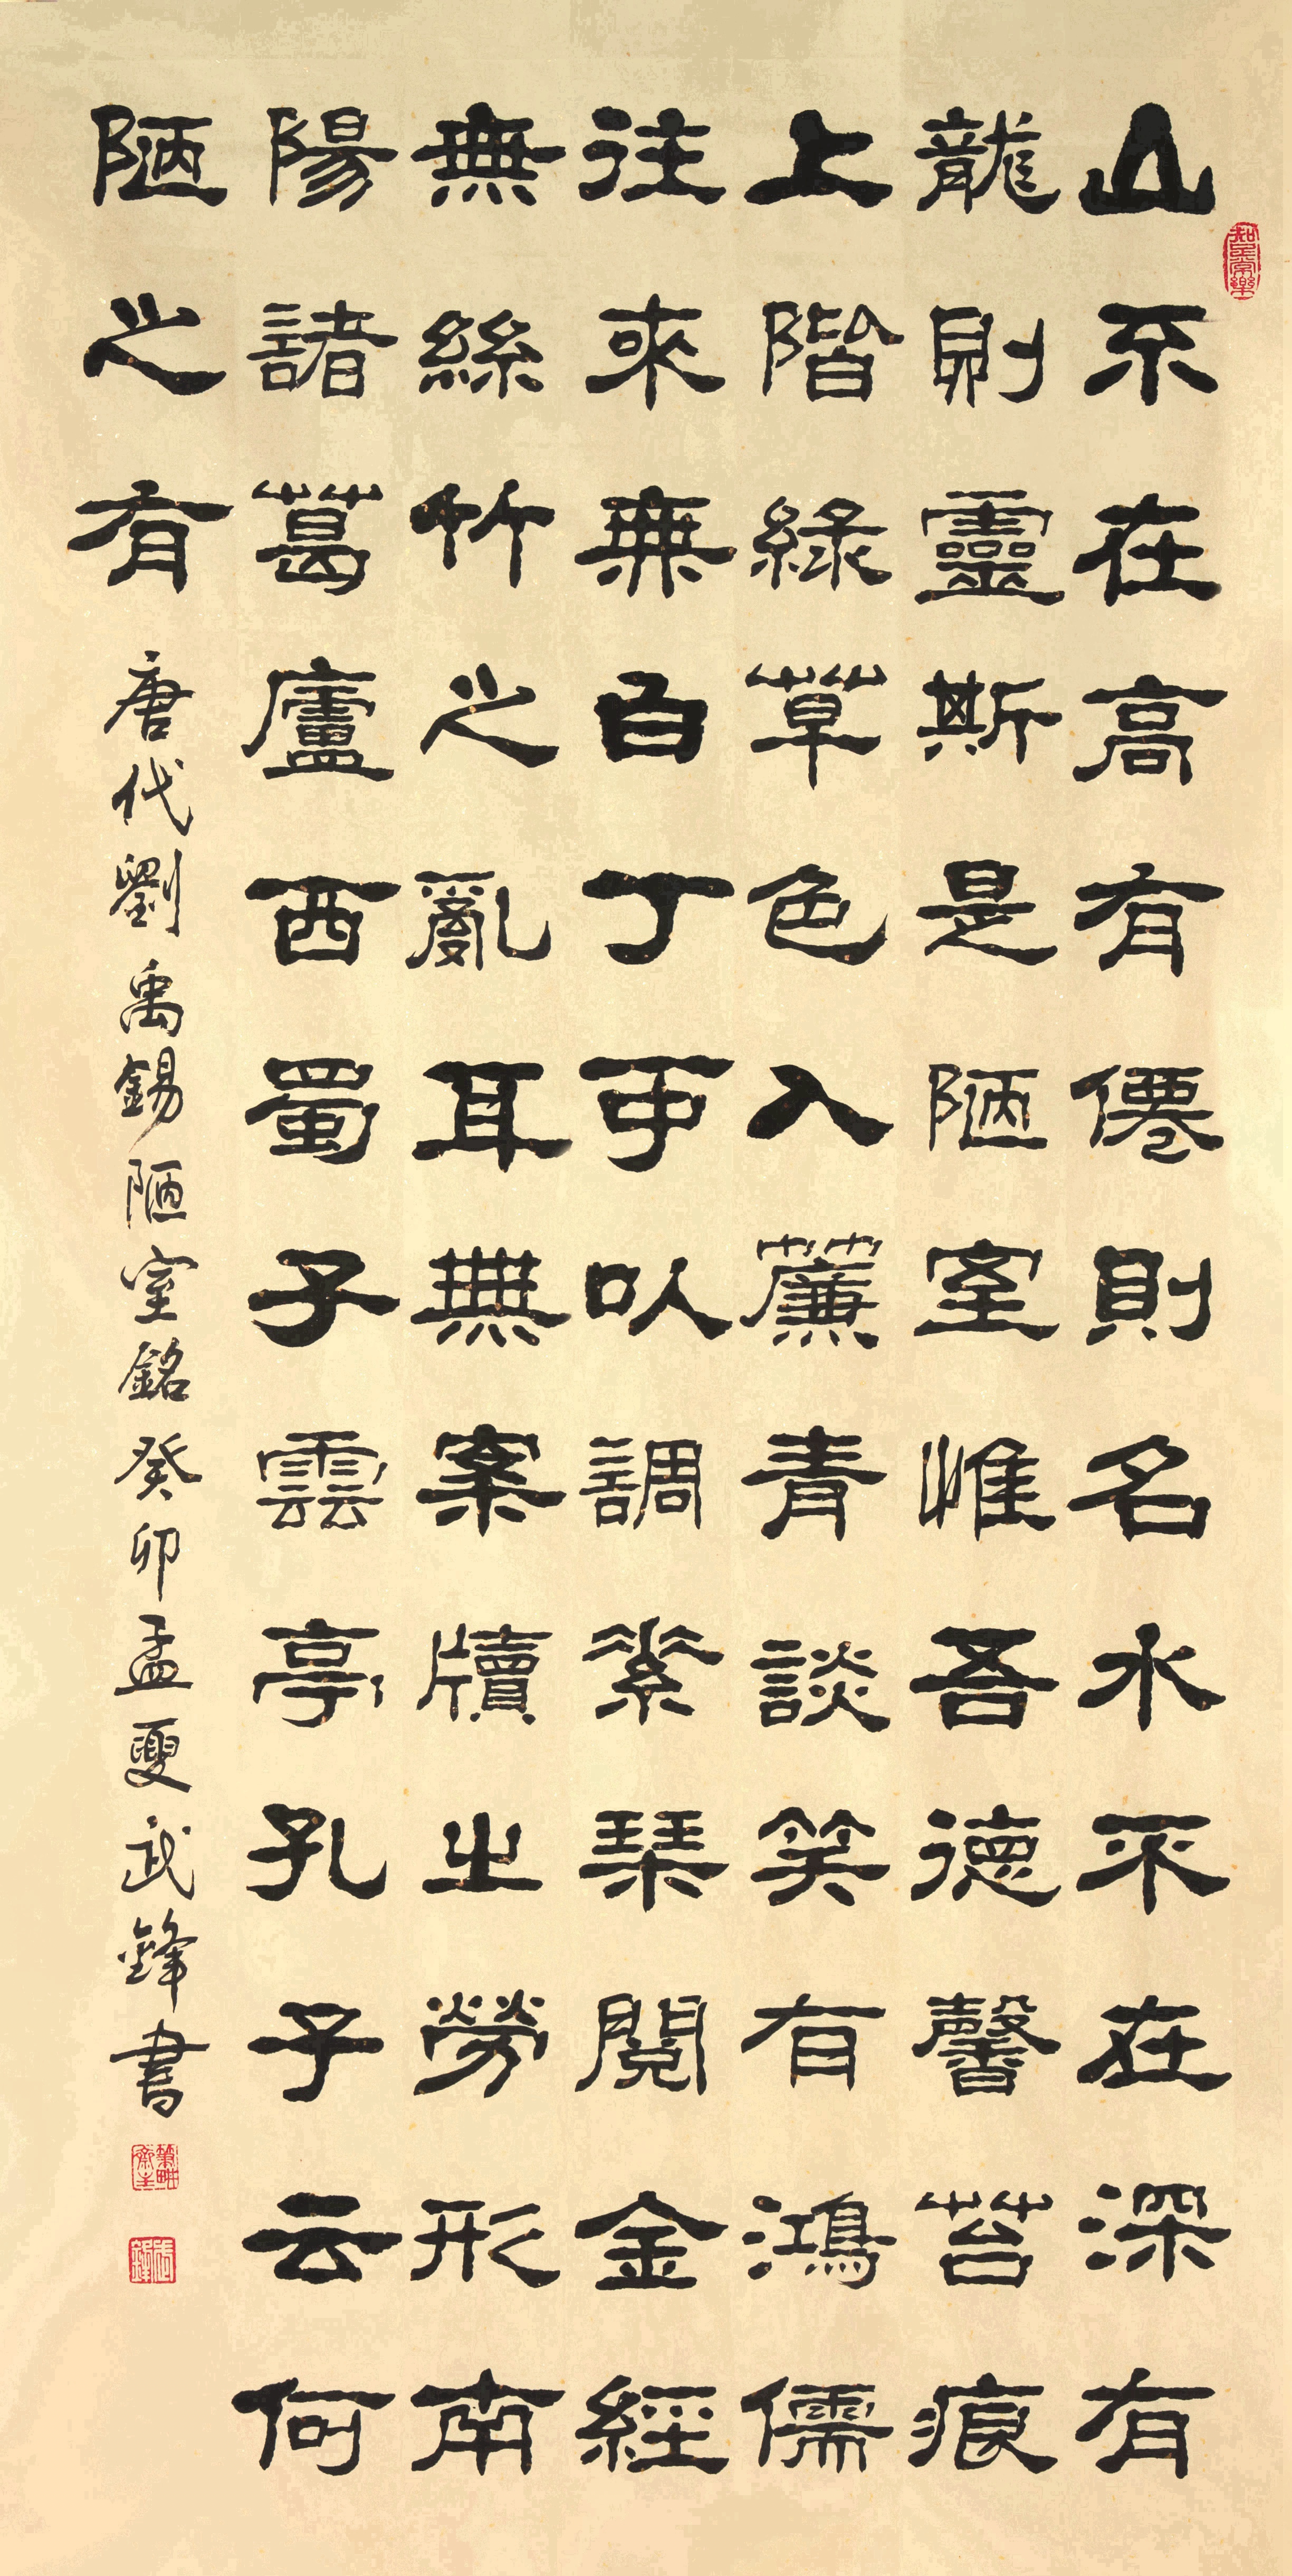 知足常樂
山不在高有僊則名水不在深有
龍則靈斯是陋室惟吾德馨苔痕
上階綠草色入薕青談笑有鴻儒
往來無白丁可以調素琴閱金經
無絲竹之亂耳無案牘之勞形南
陽諸葛廬西蜀子雲亭孔子云何
陋之有
唐代劉禹錫陋室銘癸卯孟夏武鋒書